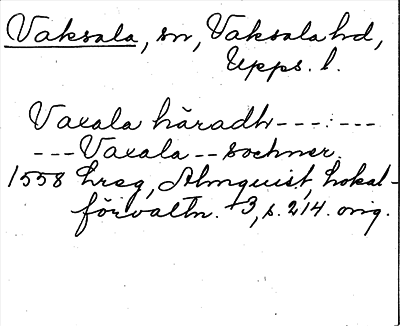 Vaksala, sn, Vaksala hd,
Upps. l.
Vaxala häradh ---:---
--- Vaxala -- sochner.
1558 hreg, Almquist, Lokal-
förvaltn. +3, s. 214. orig.